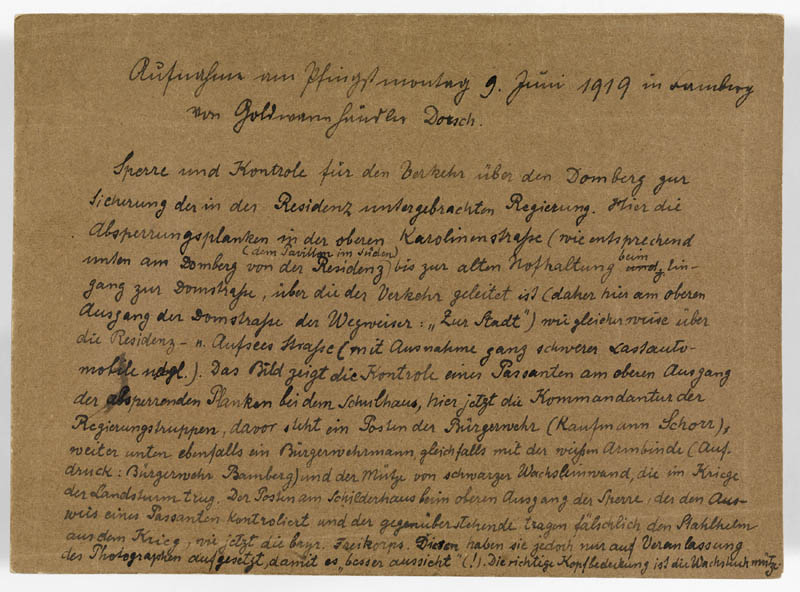 Aufnahme am Pfingstmontag 9. Juni 1919 in Bamberg
von Goldwarenhändler Dorsch.
Sperre und Kontrole für den Verkehr über den Domberg zur
Sicherung der in der Residenz untergebrachten Regierung. Hier die
Absperrungsplanken in der oberen Karolinenstraße (wie entsprechend
(dem Pavillon im Süden)
unten am Domberg von der Residenz) bis zur alten Hofhaltung beim Ein-
gang zur Domstraße, über die der Verkehr geleitet ist (daher hier am oberen
Ausgang der Domstraße der Wegweiser: „Zur Stadt") wie gleicherweise über
die Residenz- u. Aufsees Straße (mit Ausnahme ganz schwerer Lastauto-
mobile udgl.). Das Bild zeigt die Kontrole eines Passanten am oberen Ausgang
der absperrenden Planken bei dem Schulhaus, hier jetzt die Kommandantur der
Regierungstruppen, davor steht ein Posten der Bürgerwehr (Kaufmann Schorr),
weiter unten ebenfalls ein Bürgerwehrmann, gleichfalls mit der weißen Armbinde (Auf-
druck: Bürgerwehr Bamberg) und der Mütze von schwarzer Wachsleinwand, die im Kriege
der Landsturm trug. Der Posten am Schilderhaus beim oberen Ausgang der Sperre, der den Aus-
weis eines Passanten kontroliert und der gegenüberstehende tragen fälschlich den Stahlhelm
aus dem Krieg, wie jetzt die bayr. Freikorps. Diesen haben sie jedoch nur auf Veranlassung
des Photographen aufgesetzt, damit es „besser aussieht" (!). Die richtige Kopfbedeckung ist die Wachstuchmütze.